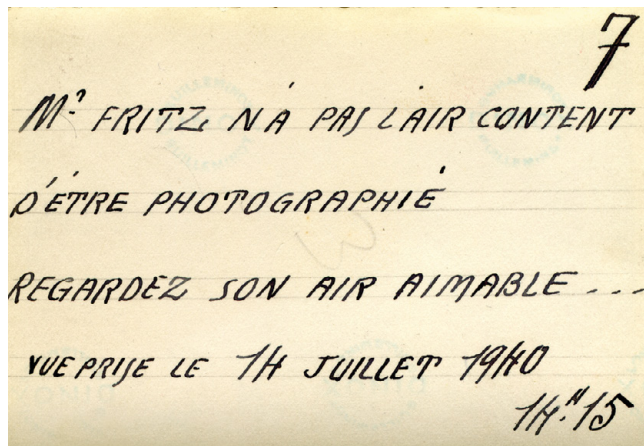 7
Mr FRITZ N'A PAS L'AIR CONTENT
D'ÊTRE PHOTOGRAPHIÉ
REGARDEZ SON AIR AIMABLE...
VUE PRISE LE 14 JUILLET 1940
14H15